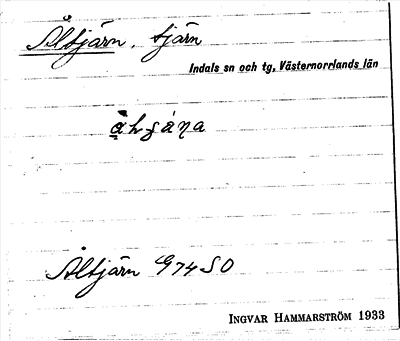 Åltjärn, tjärn
Indals sn och tg, Västernorrlands län
Åltjärn G74 SO
INGVAR HAMMARSTRÖM 1933